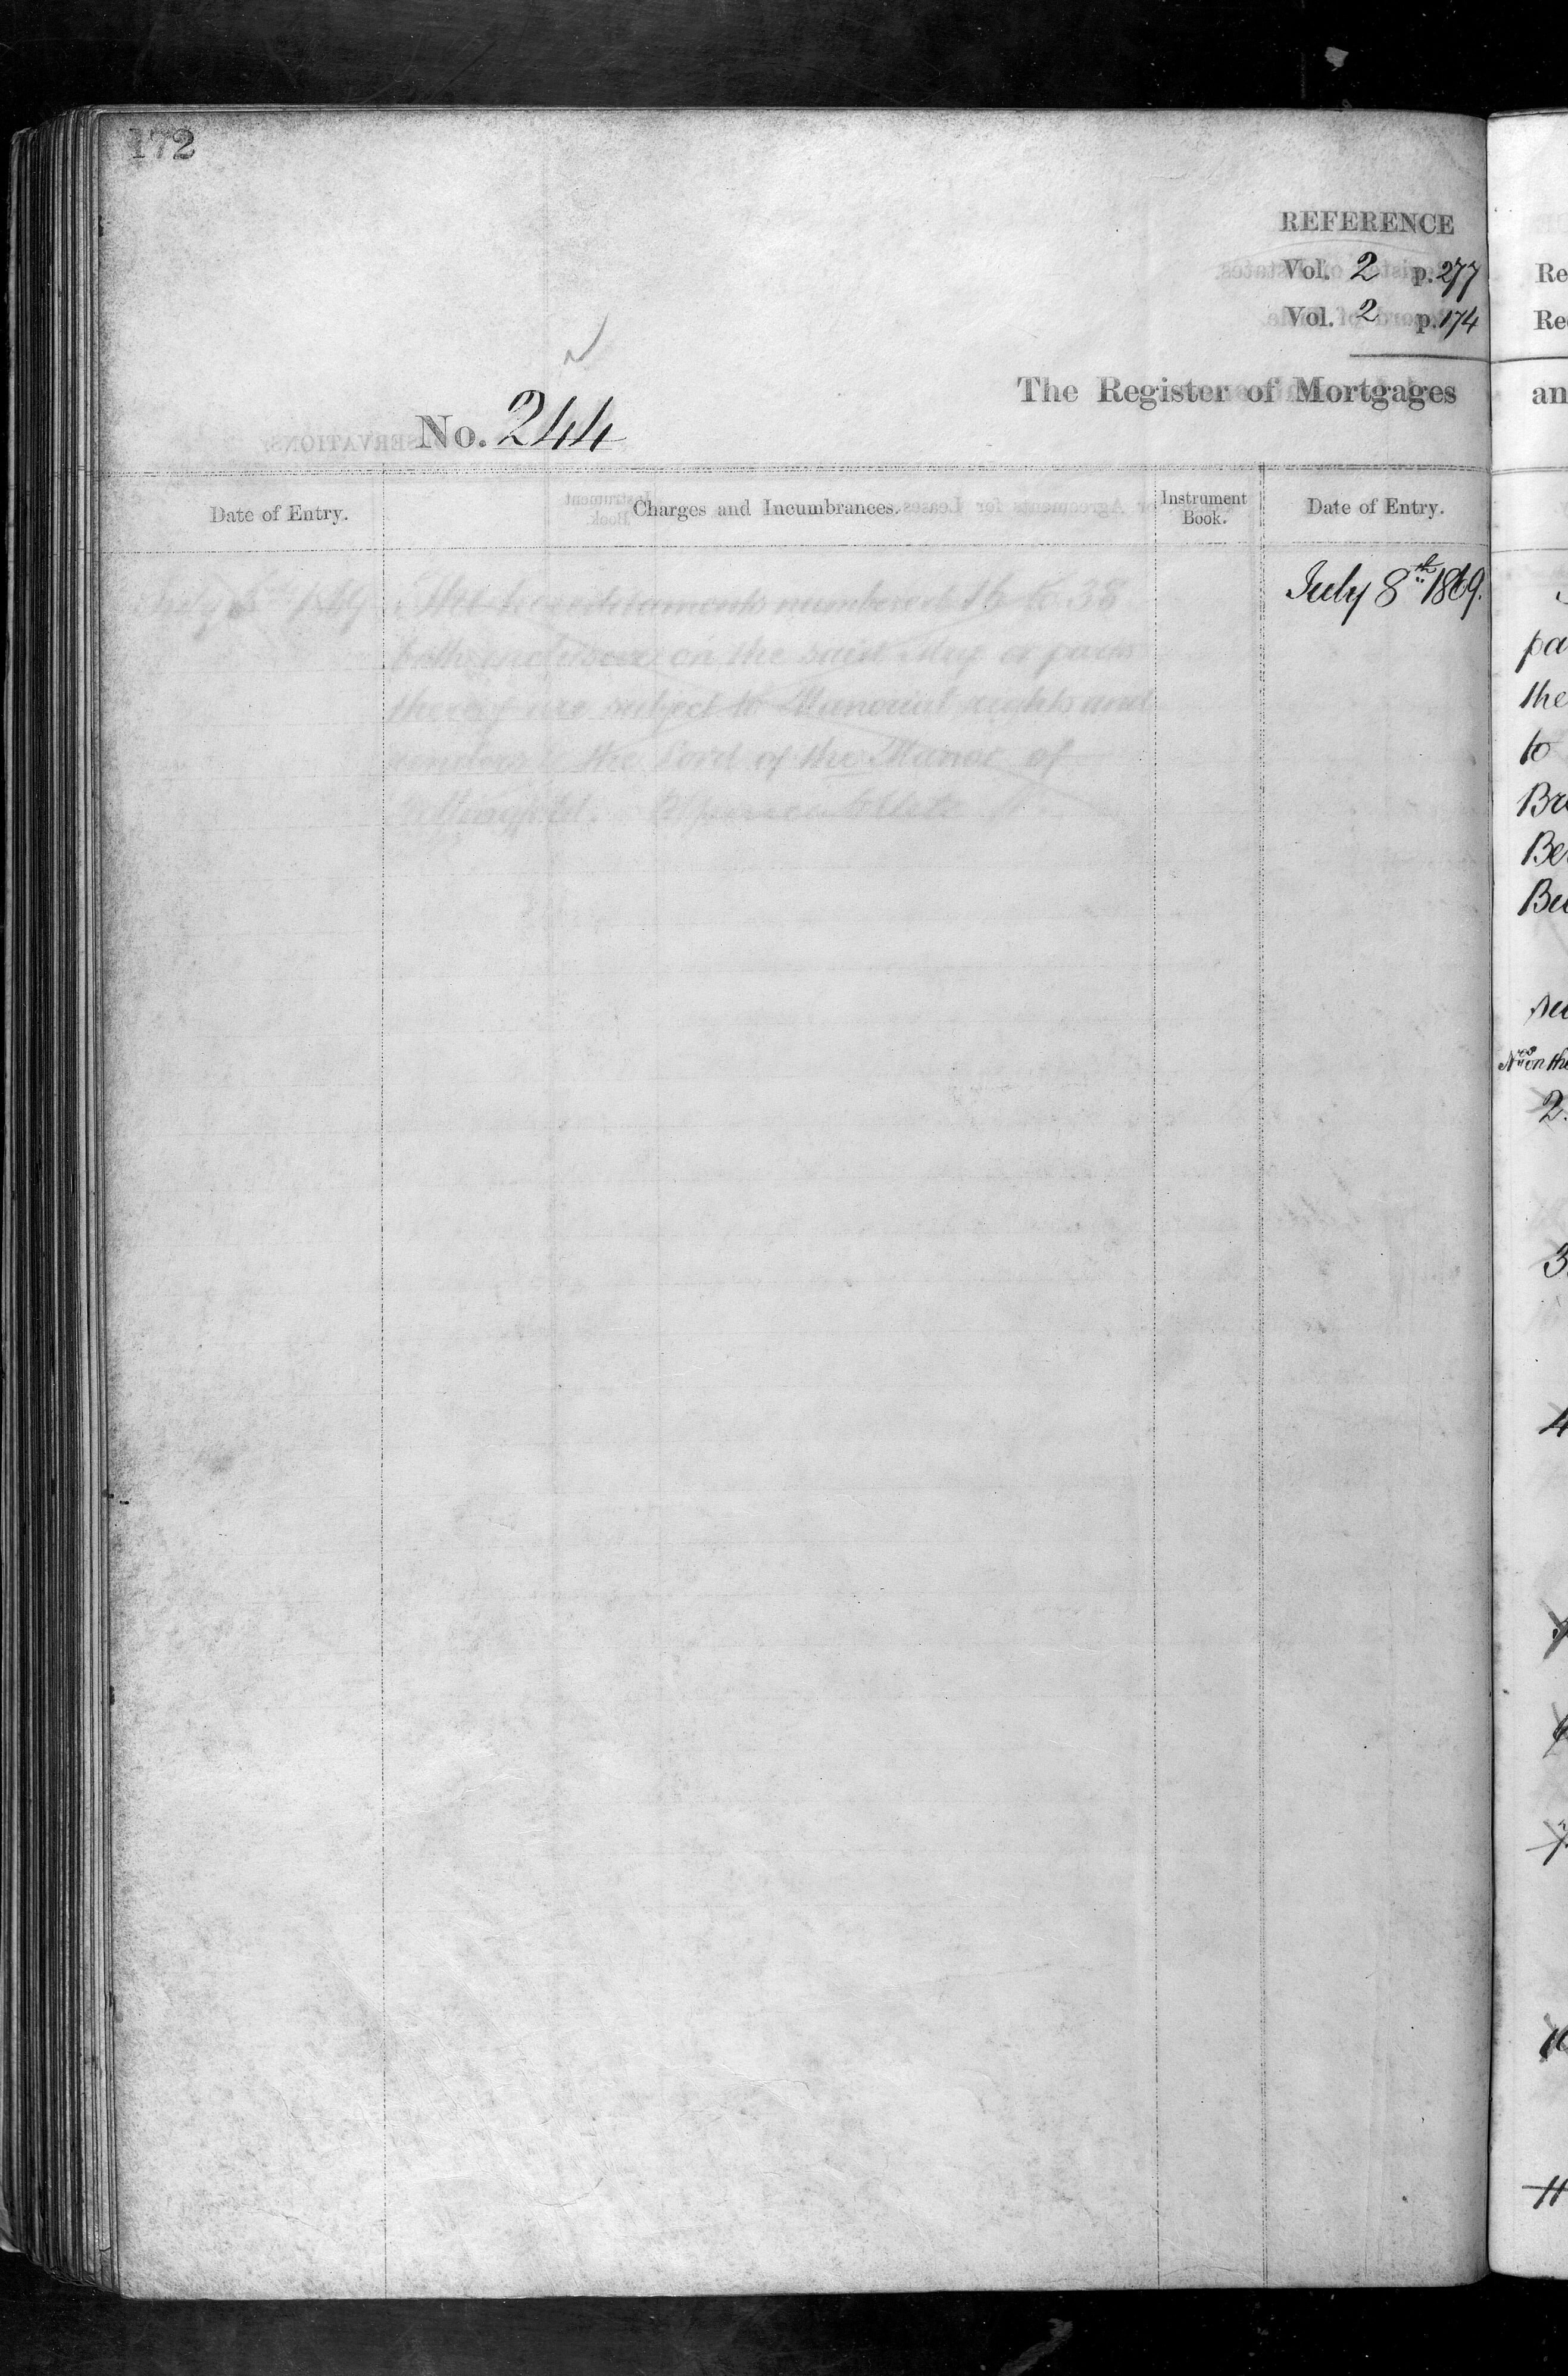 172
REFERENCE
Vol. 2 p. 277
Vol. 2 p. 174
The Register of Mortgages
No. 244
Date of Entry.
Charges and Incumbrances.
Instrument Book.
Date of Entry.
July 8th 1869.
July 1869 The hereditaments numbered 16 to 38
both inclusive on the said Map or parts
thereof are subject to Manorial rights and
the Lord of the Manor of
Re
Re
an
pa
the
to
Br
Be
Nos on the
2.
3
4
11